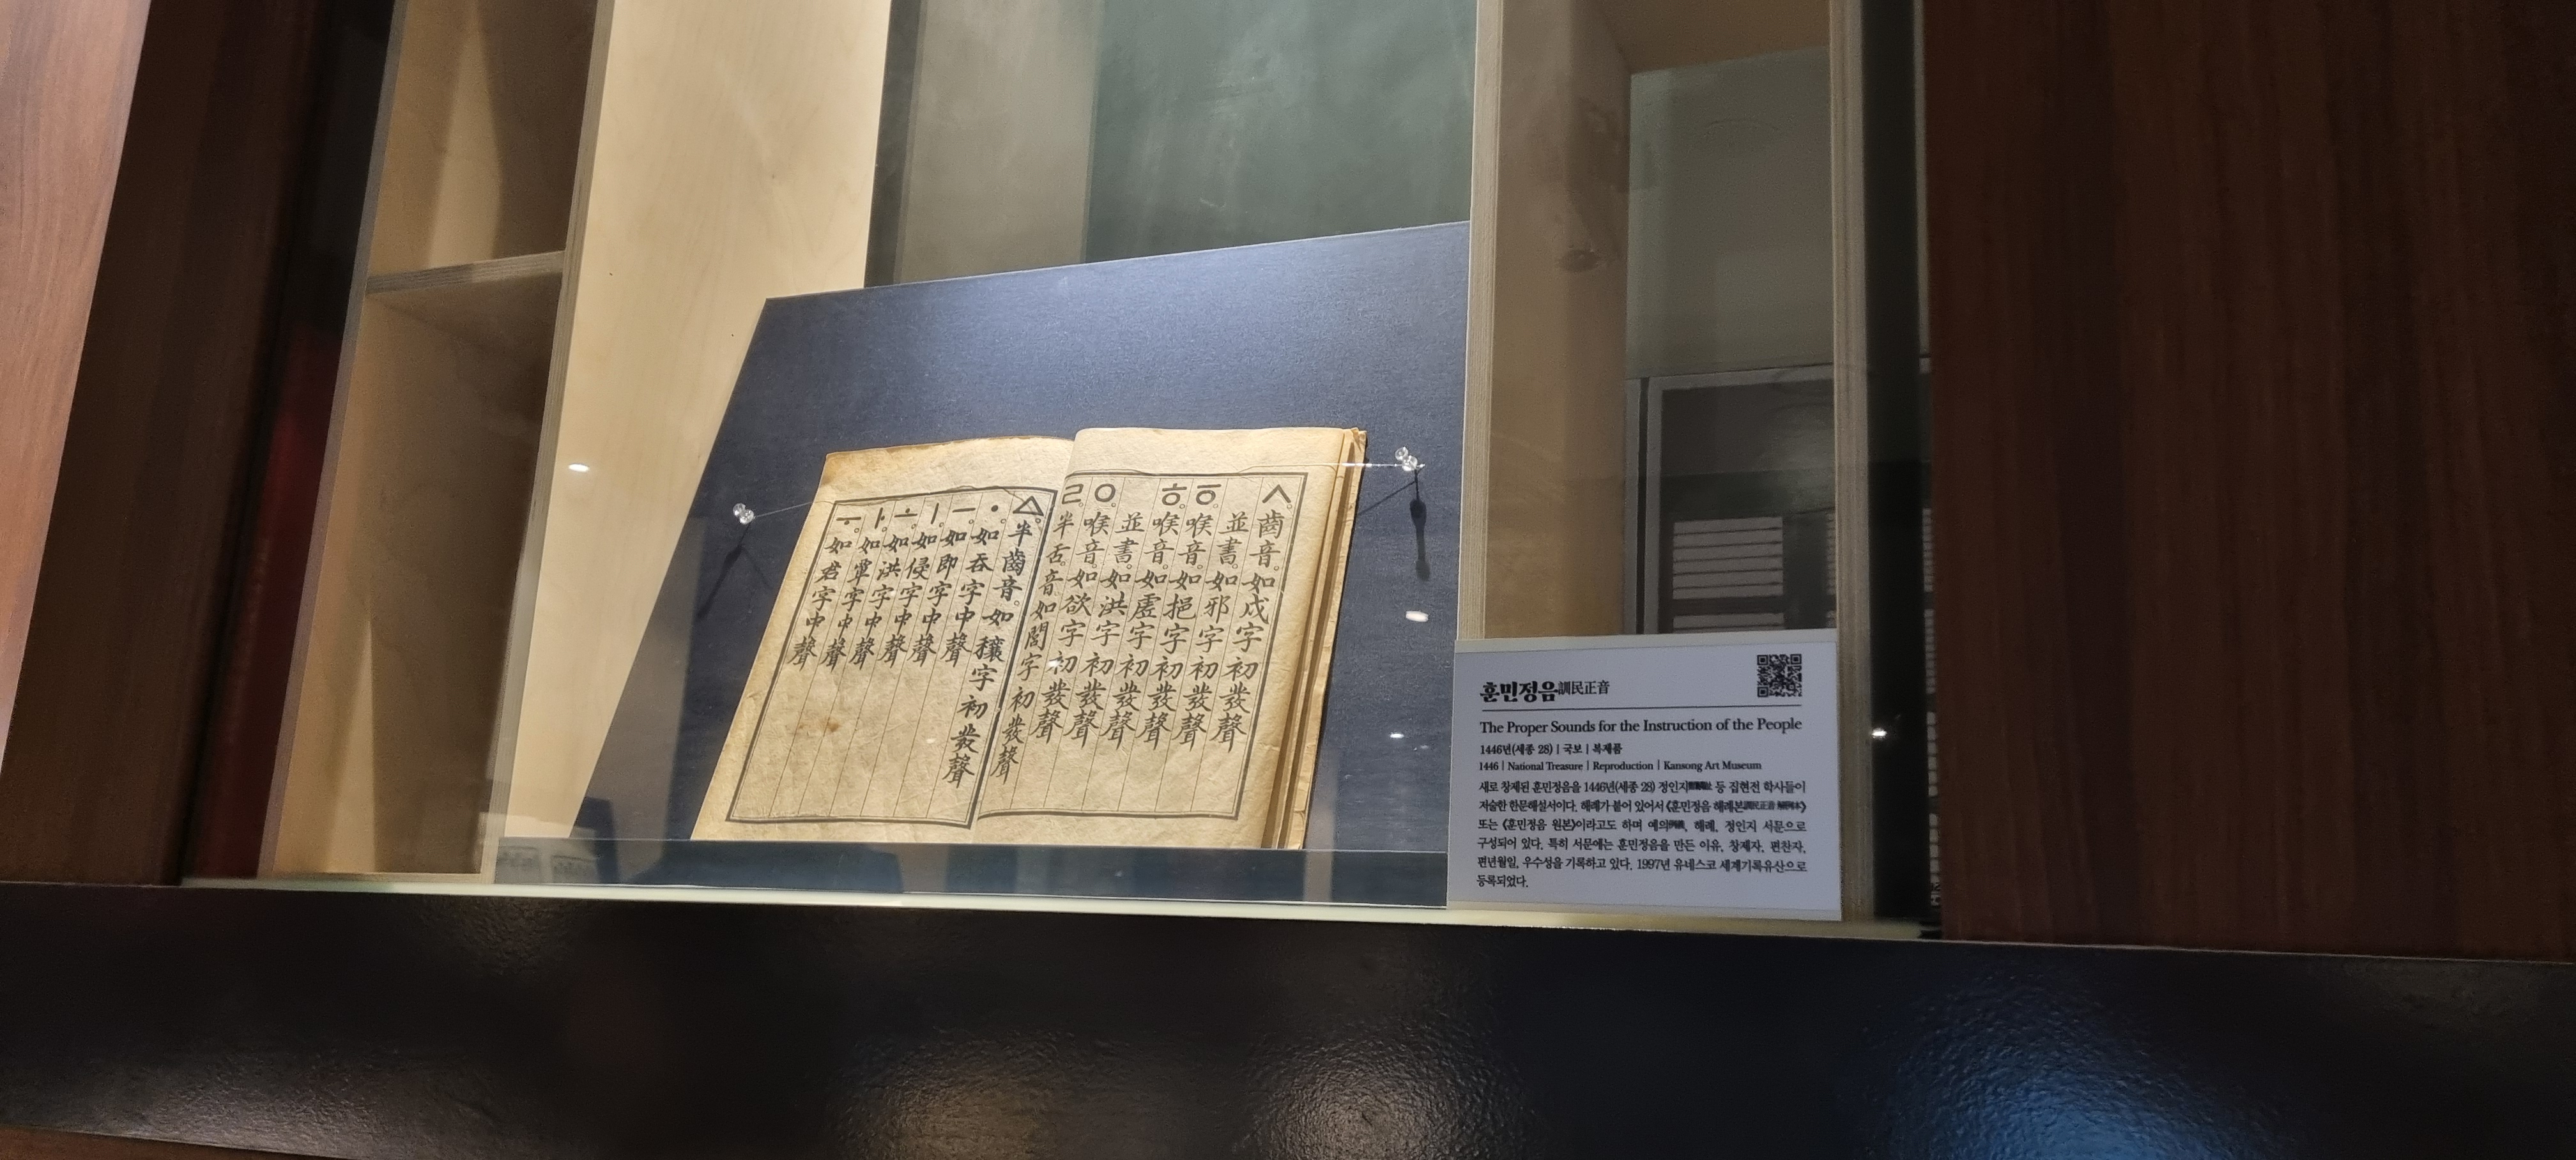 ㅅ。齒音。如戌字初發聲
並書。如邪字初發聲
ㆆ。喉音。如挹字初發聲
ㅎ。喉音。如虛字初發聲
並書。如洪字初發聲
ㅇ。喉音。如欲字初發聲
ㄹ。半舌音。如閭字初發聲
ㅿ。半齒音。如穰字初發聲
ㆍ。如呑字中聲
ㅡ。如即字中聲
ㅣ。如侵字中聲
ㅗ。如洪字中聲
ㅏ。如覃字中聲
ㅜ。如君字中聲
훈민정음訓民正音
The Proper Sounds for the Instruction of the People
1446년(세종 28) | 국보 | 복제품
1446 | National Treasure | Reproduction | Kansong Art Museum
새로 창제된 훈민정음을 1446년(세종 28) 정인지 등 집현전 학사들이
저술한 한문해설서이다. 해례가 붙어 있어서 《훈민정음 해례본訓民正音》
또는 《훈민정음 원본》이라고도 하며 예의, 해례, 정인지 서문으로
구성되어 있다. 특히 서문에는 훈민정음을 만든 이유, 창제자, 편찬자,
편년월일, 우수성을 기록하고 있다. 1997년 유네스코 세계기록유산으로
등록되었다.